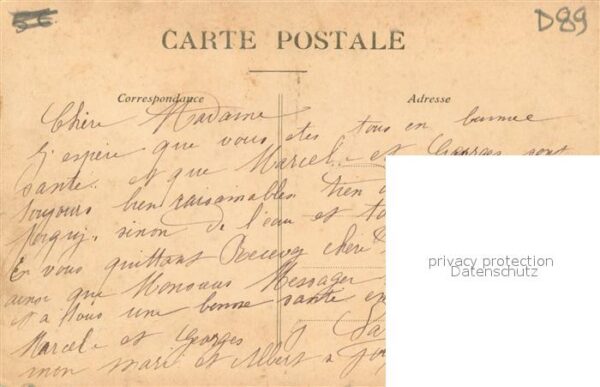 D89
CARTE POSTALE
Correspondance
Adresse
Chère Madame
J'espère que vous etes tous en bonnee
santé. et que Marcel et Georges sont
toujours bien raisonnables rien
sinon de l'eau et
En vous quittant Recevez chere
ainsi que Monsieur Messager
et a tous une bonne santé en
Marcel et Georges
mon mari et Albert a
privacy protection
Datenschutz